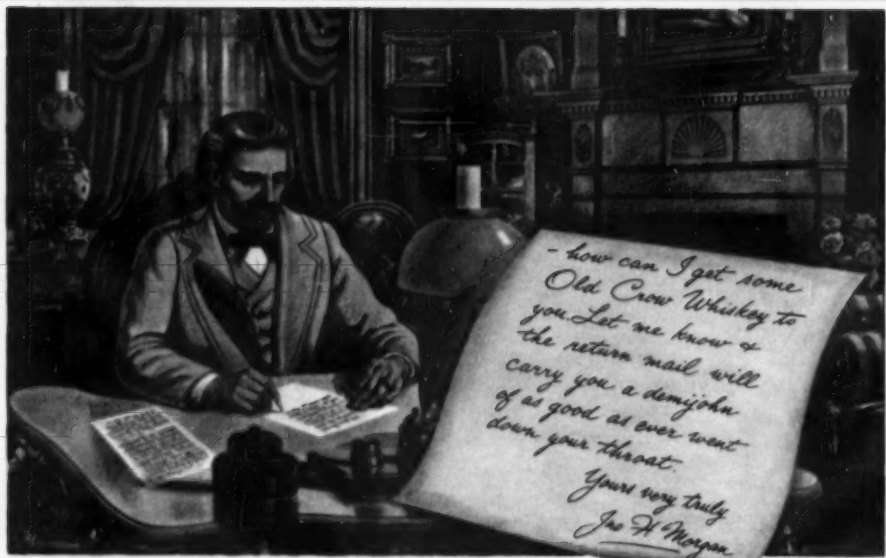 - how can I get some
Old Crow Whiskey to
you. Let me know &
the return mail will
carry you a demijohn
of as good as ever went
down your throat.
Yours very truly
Jno H Morgan